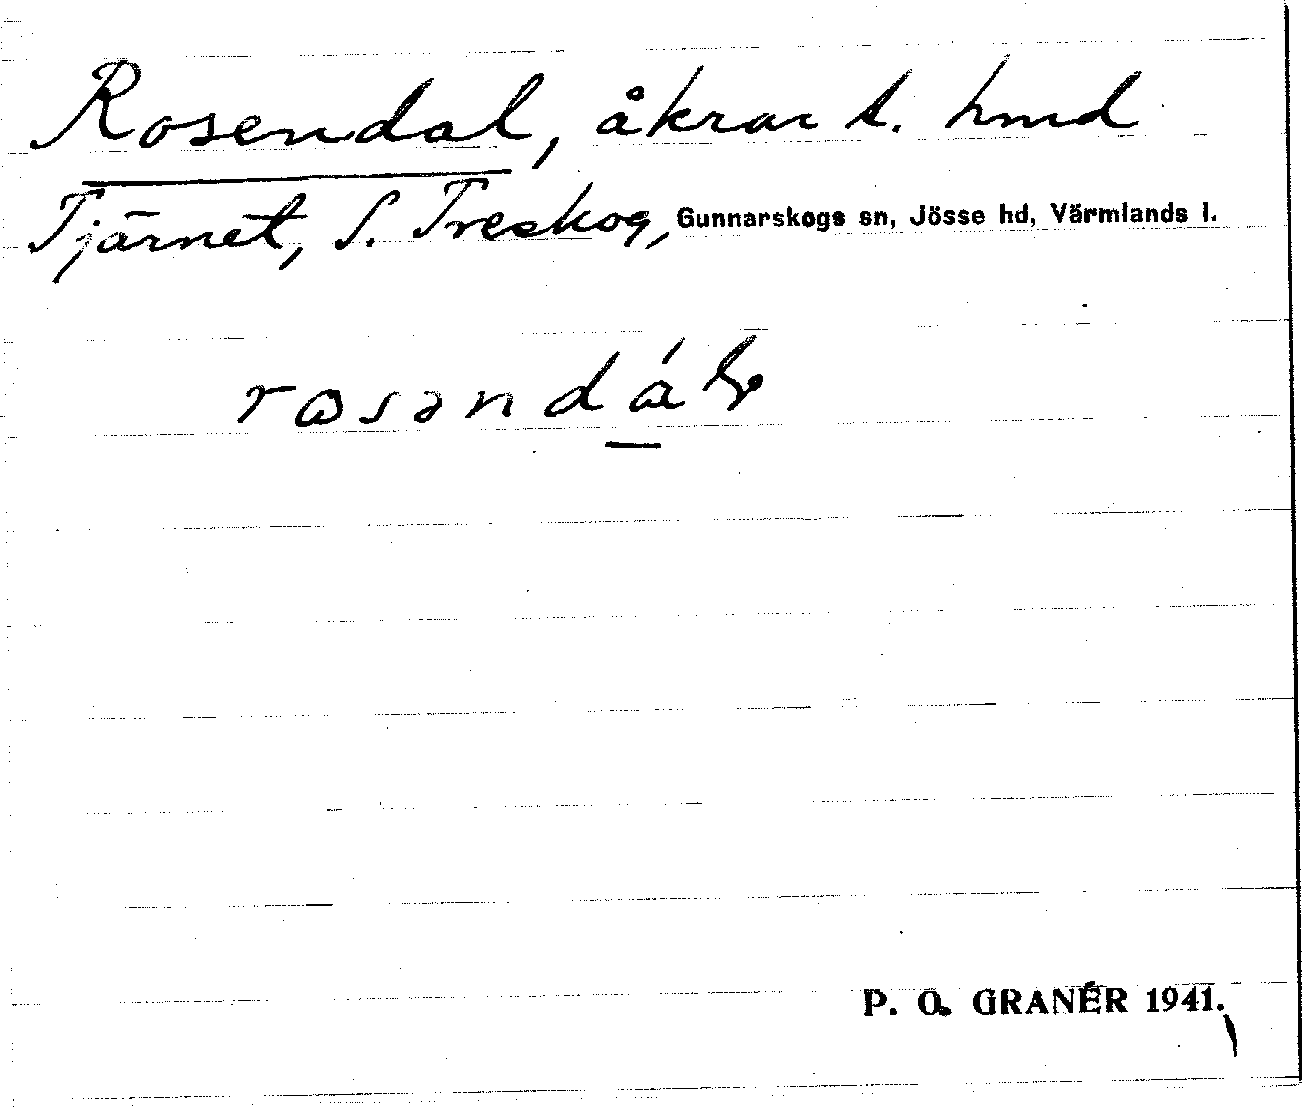 Rosendal, åkrar t. hmd
Tjärnet, S. Treskog, Gunnarskogs sn, Jösse hd, Värmlands l.
P. O. GRANÉR 1941.